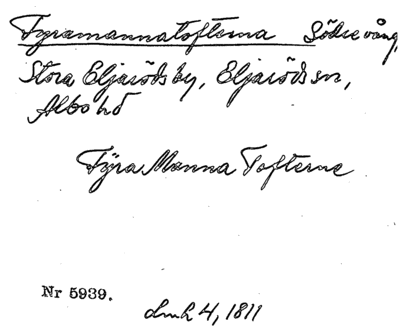 Fyramannatofterna Södrevång,
Stora Eljaröds by, Eljaröds sn,
Albo hd
Fÿra Manna Tofterne
Nr 5939.
Lmh 4, 1811